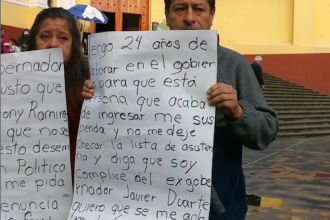 bernador
usto que
ony Ramire
que nos
esto desem
Politico
me pida
denuncia
Tengo 24 años de
laborar en el gobier
para que esta
sona que acaba
de ingresar me sus
penda y no me deje
checar la lista de asisten
cia y diga que soy
complice del exgober
nador Javier Duarte
quiero que se me